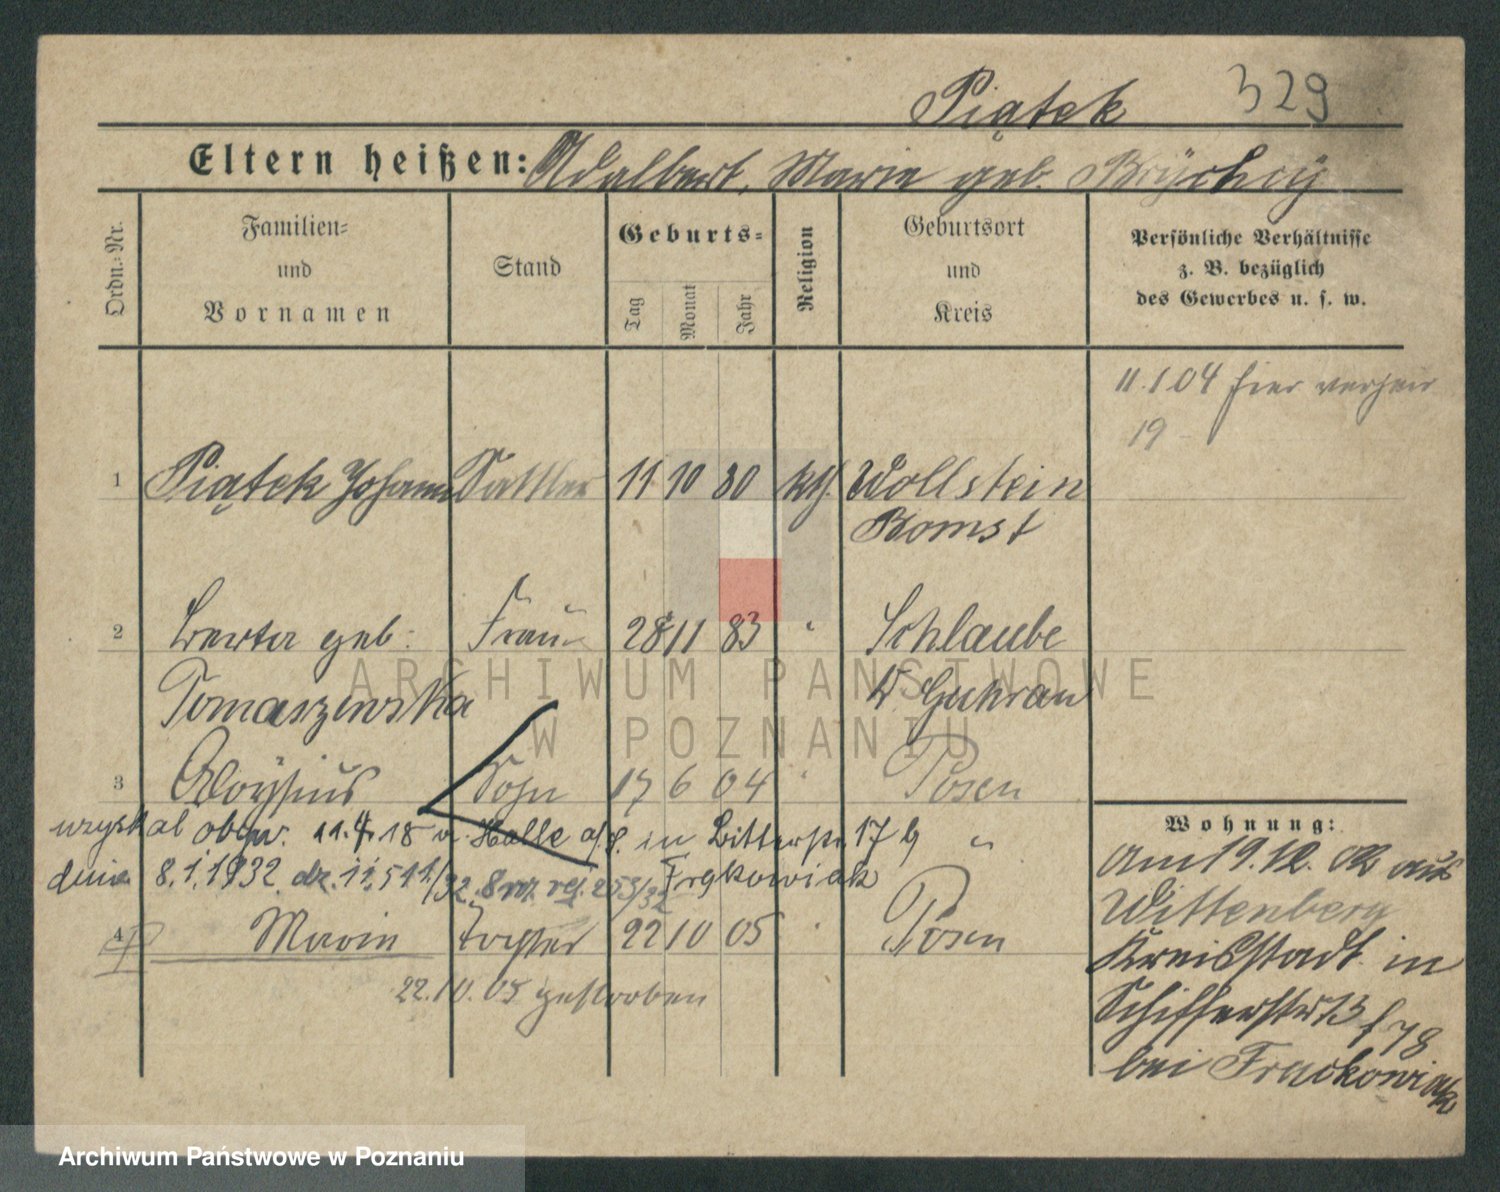 Piątek 329
Eltern heißen: Adalbert, Marie geb.
Ordn.-Nr.
Familien- und Vornamen
Stand
Geburts-
Tag
Monat
Jahr
Religion
Geburtsort und Kreis
Persönliche Verhältnisse
z. B. bezüglich
des Gewerbes u. s. w.
11.1.04 hier verheir
19
1 Piątek Johann Sattler 11 10 80 kth. Wollstein
Bomst
2 geb: Frau 28 11 83 " Schlaube
Tomaszewska Guhrau
3 Aloysius Sohn 17 6 04 " Posen
uzyskał obyw. 11.4.18 v. Halle a/S. in 17 b
dnia 8.1.1932 Frąkowiak
4 Marie Tochter 22 10 05 " Posen
22.10.05 gestorben
Wohnung:
am 19.12.02 aus
Wittenberg
Kreisstadt in
Schifferstr 13
bei Frackowiak
ARCHIWUM PAŃSTWOWE
W POZNANIU
Archiwum Państwowe w Poznaniu